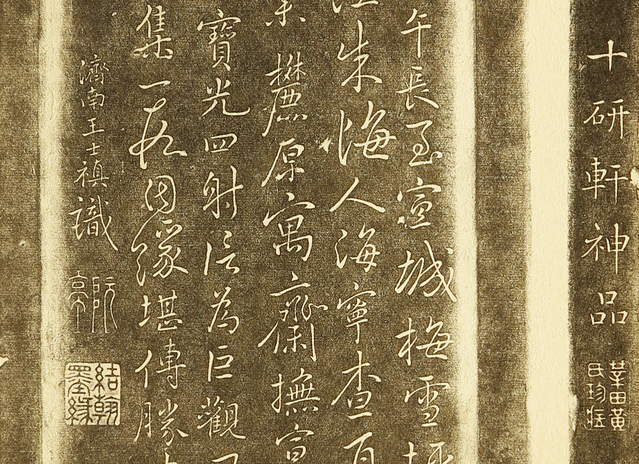 十研軒神品
莘田黃
氏珍藏
午長至宣城梅雪坪
朱悔人海寧查夏
麓原寓齋撫宣
寶光四射詫為巨觀
集一段因緣堪傳勝
濟南王士禛識
阮亭
結翰
墨緣